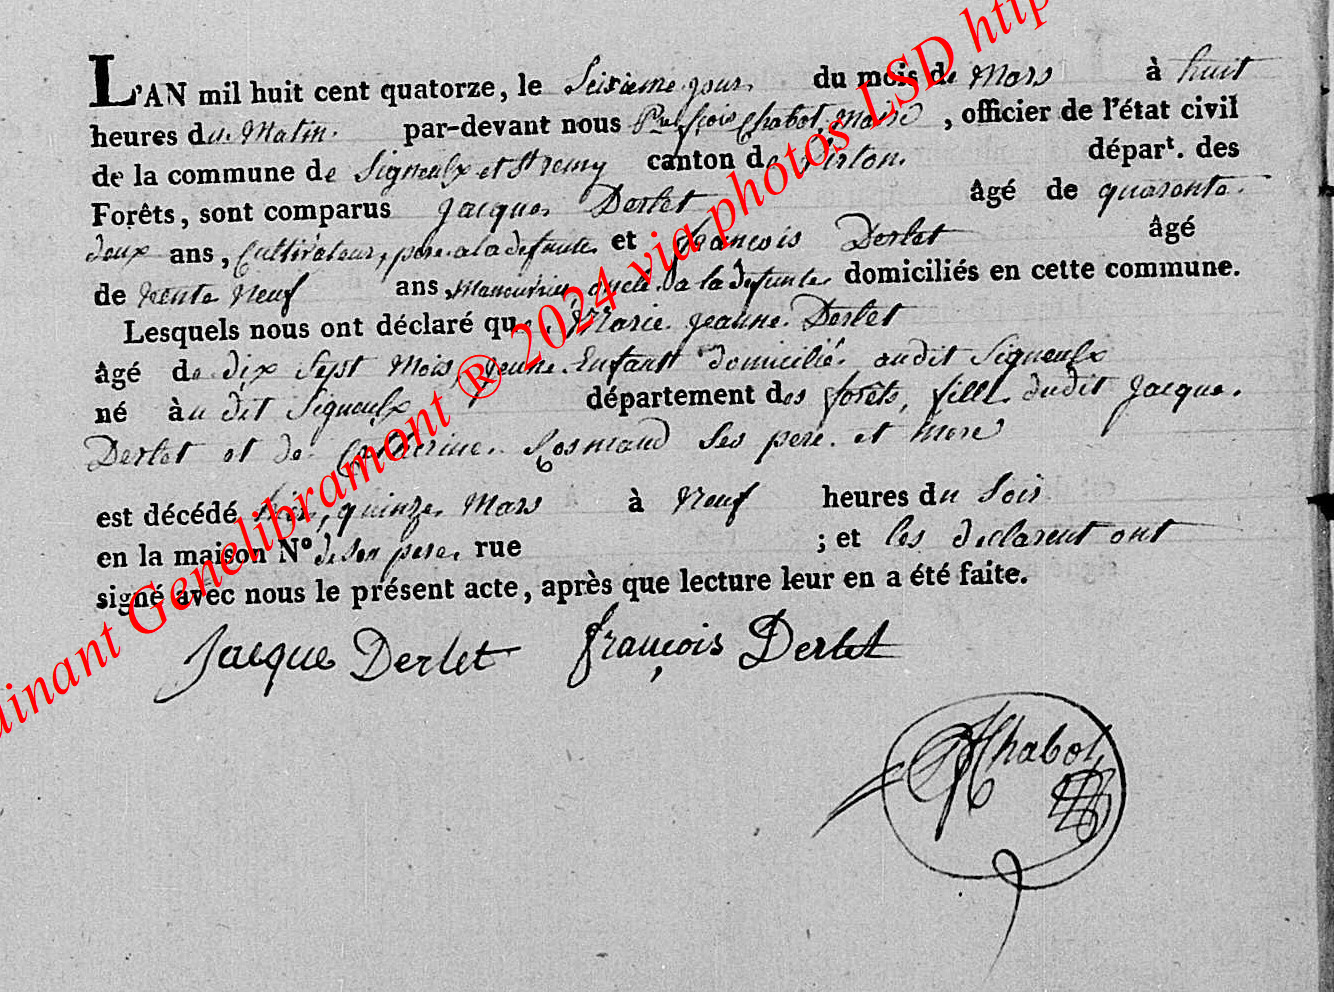 L'AN mil huit cent quatorze, le Seixieme jour du mois de Mars à huit
heures du Matin. par-devant nous Pre fçois Chabot, Maire, officier de l'état civil
de la commune de Signeulx et St remy canton de Virton. départ. des
Forêts, sont comparus Jacques Derlet âgé de quarente
deux ans, Cultivateur, pere a la defunte et françois Derlet âgé
de trente Neuf ans, Maneuvrier, oncle a la defunte domiciliés en cette commune.
Lesquels nous ont déclaré que Marie Jeanne Derlet
âgé de dix Sept Mois, jeune Enfant domicilié audit Signeulx
né à u dit Signeulx département des forêts, fille dudit Jacque
Derlet et de Catherine Rosmand Ses pere et mere
est décédé hier, quinze Mars à Neuf heures du Soir
en la maison N° de Son pere, rue ; et les declarent ont
signé avec nous le présent acte, après que lecture leur en a été faite.
Jacque Derlet françois Derlet
Chabot
ainant Genelibramont ® 2024 via photos LSD http